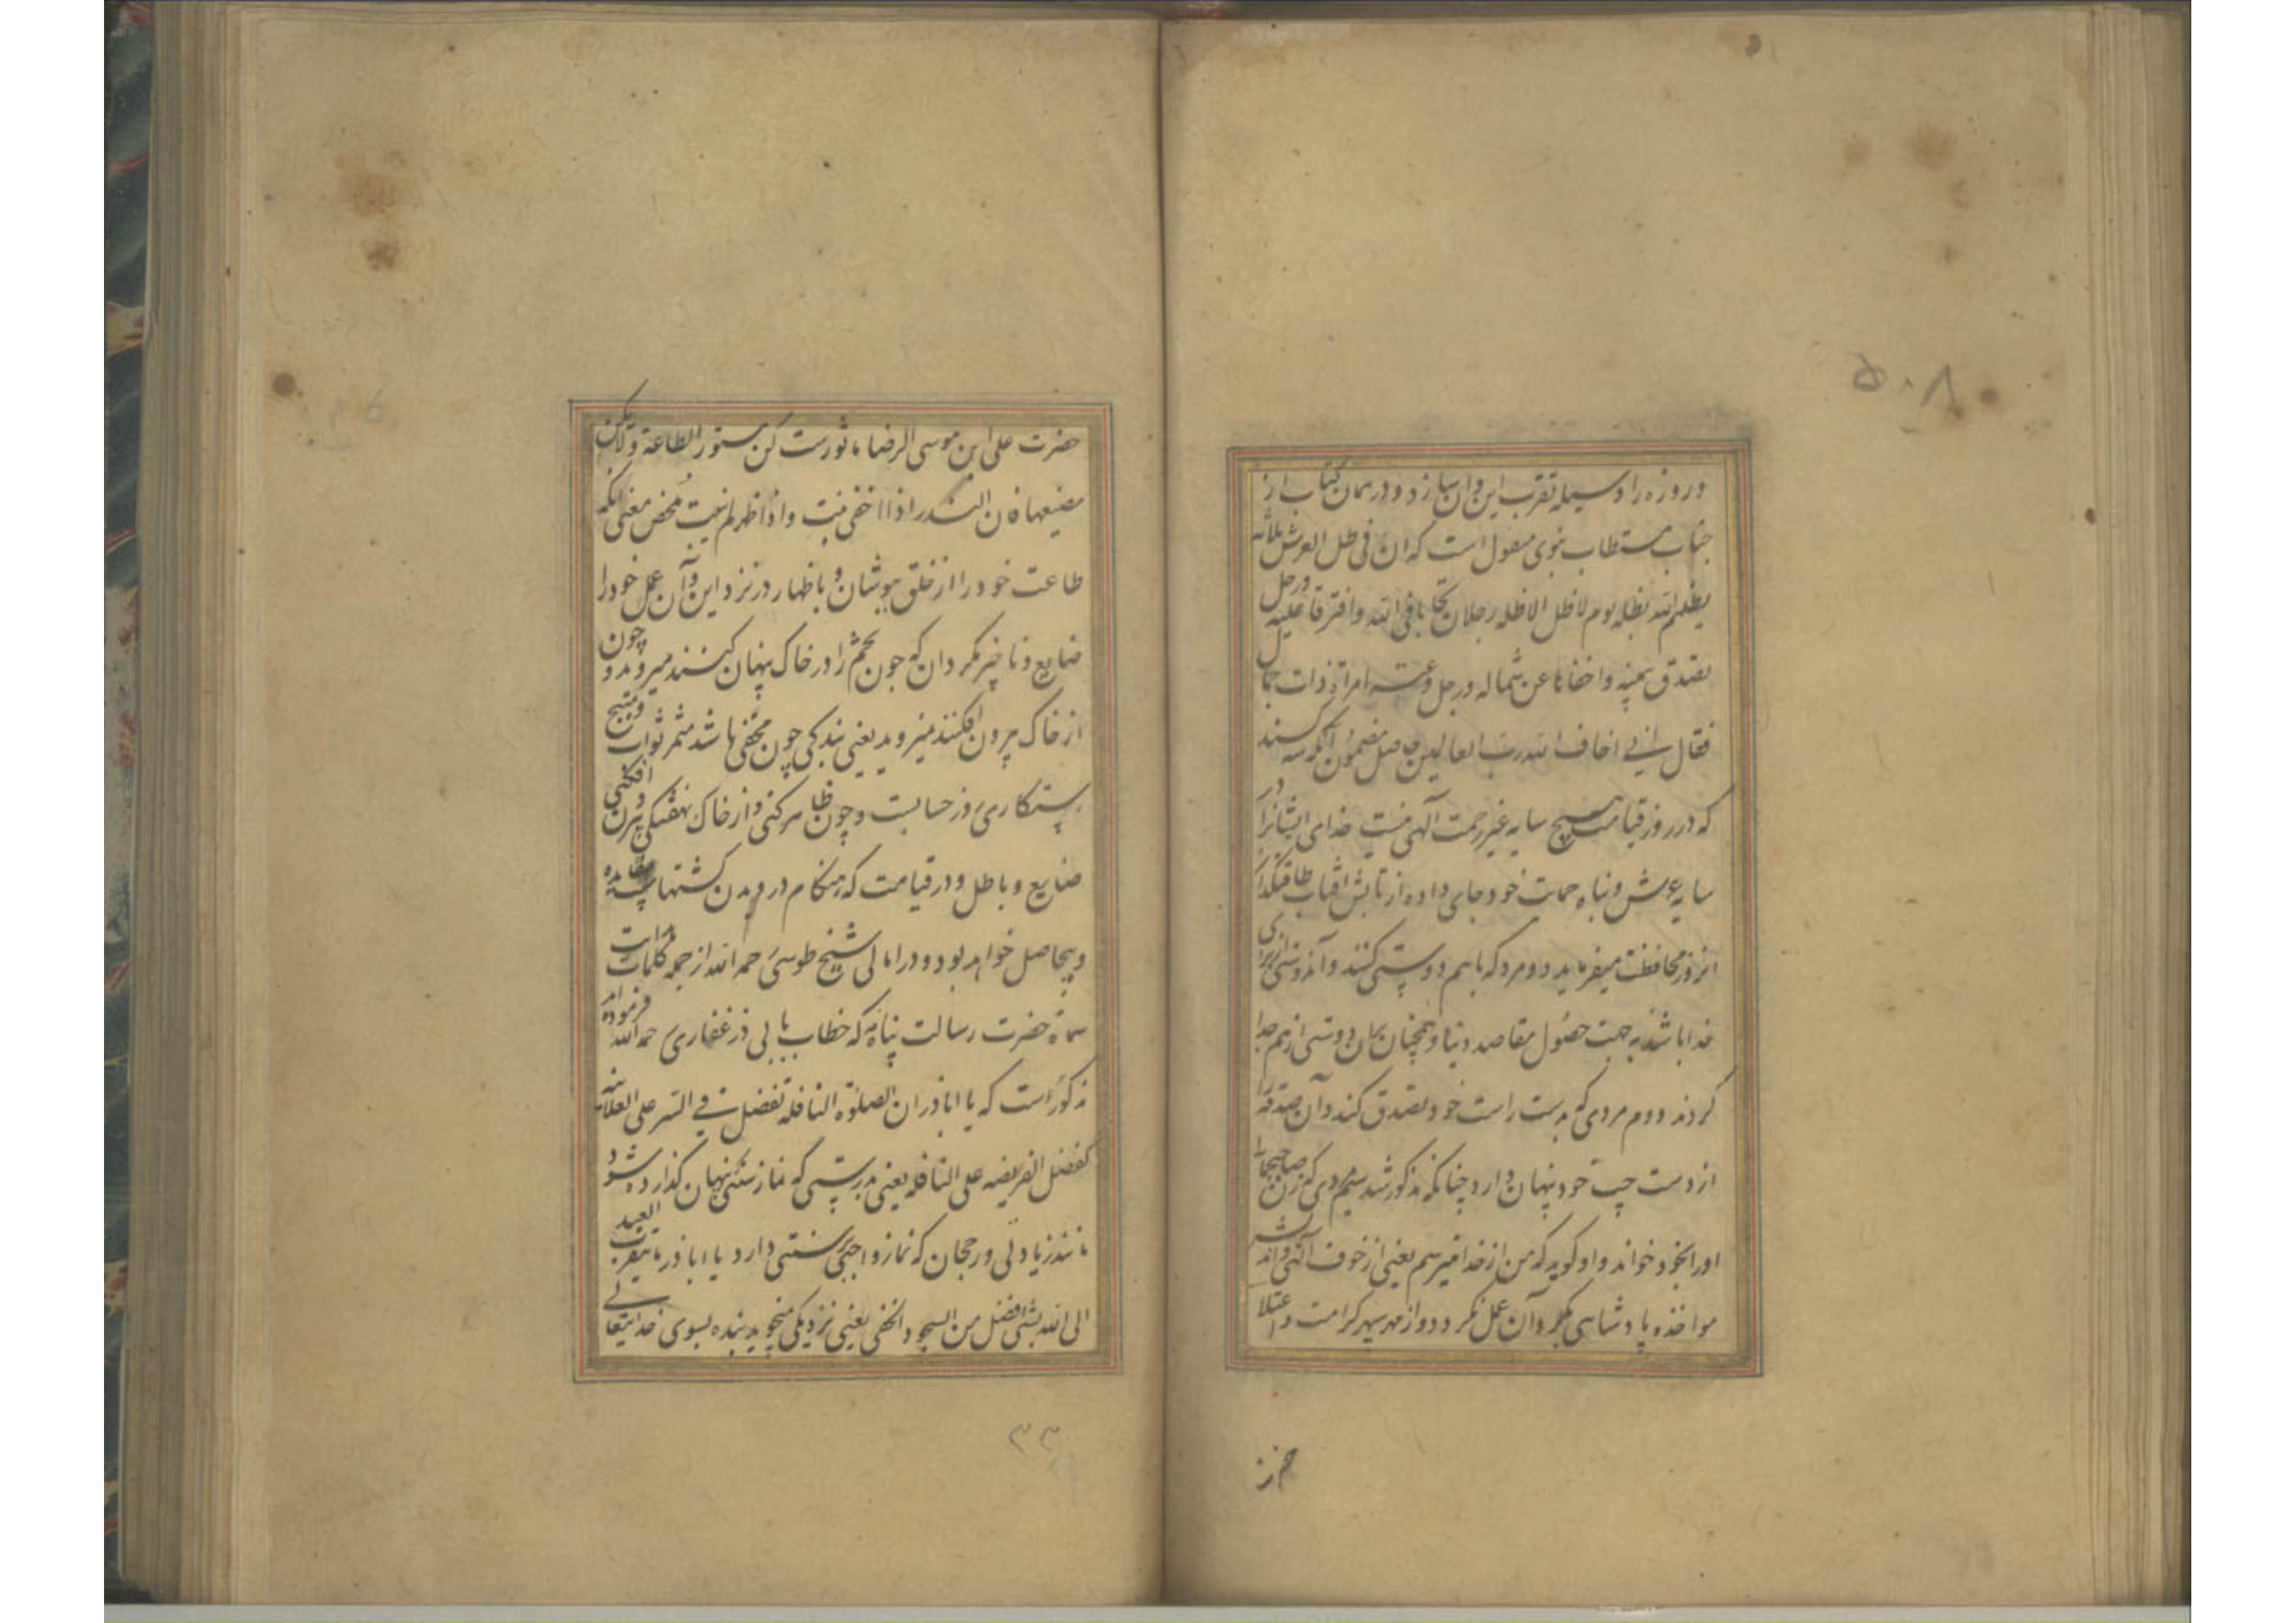 ۵۰۸
و روزه را وسیله تقرب این و آن سازد و در همان کتاب از
جناب مستطاب نبوی منقول است که ان فی ظل العرش ثلاثه
یظلهم الله بظله یوم لا ظل الا ظله رجلان تحابا فی الله وافترقا علیه ورجل
تصدق بیمینه و اخفاها عن شماله ورجل دعته امراة ذات جمال
فقال انی اخاف الله رب العالمین حاصل مضمون آنکه سه کسند
که در روز قیامت که هیچ سایه غیر رحمت آلهی نیست خدای ایشانرا در
سایه عرش و پناه حمایت خود جای داده از تابش آفتاب طاقتگداز
انروز محافظت میفرماید دو مرد که باهم دوستی کنند و آندوستی برای
خدا باشد نه جهت حصول مقاصد دنیا و همچنان بهمان دوستی از هم جدا
کردند دوم مردی که بدست راست خود تصدق کند و آن صدقه را
از دست چپ خود پنهان دارد چنانکه مذکور شد سیم مردی که زن صاحبجمال
اورا بخود خواند و او کوید که من از خدا میترسم یعنی از خوف آلهی و اندیشه
مواخذه پادشاهی بکرد آن عمل نکردد و از مهر سپهر کرامت و اعتلا
حضرت
حضرت علی ابن موسی الرضا ماثورست کن مستور الطاعة ولاتکن
مضیعها فان البذر اذا اخفی نبت و اذا ظهر لم ینبت مُحض معنی آنکه
طاعت خود را از خلق بپوشان و باظهار در نزد این و آن عمل خود را
ضایع و ناچیز مکردان که چون تخم را در خاک پنهان کنند میروید و چون
از خاک بیرون افکنند نمیروید یعنی بندکی چون مخفی باشد مثمر ثواب و منتج
رستکاری روز حسابست و چون ظاهر کنی و از خاک نهفتکی بیرون افکنی
ضایع و باطل و در قیامت که هنکام درویدن کشتهاست بیفایده
و بیحاصل خواهد بود و در امالی شیخ طوسی رحمه الله از جمله کلمات
حضرت رسالت پناه که خطاب بابی ذر غفاری رحمه الله فرموده اند
مذکور است که یا اباذر ان الصلوة النافله تفضل فی السر علی العلانیه
کفضل الفریضه علی النافله یعنی بدرستی که نماز سنتی پنهان کذارده شود
مانند زیادتی و رجحان که نماز واجبی بر سنتی دارد یا اباذر ما یتقرب العبد
الی الله بشئ افضل من السجود الخفی یعنی نزدیکی نمیجوید بنده بسوی خدایتعالی
۳۳